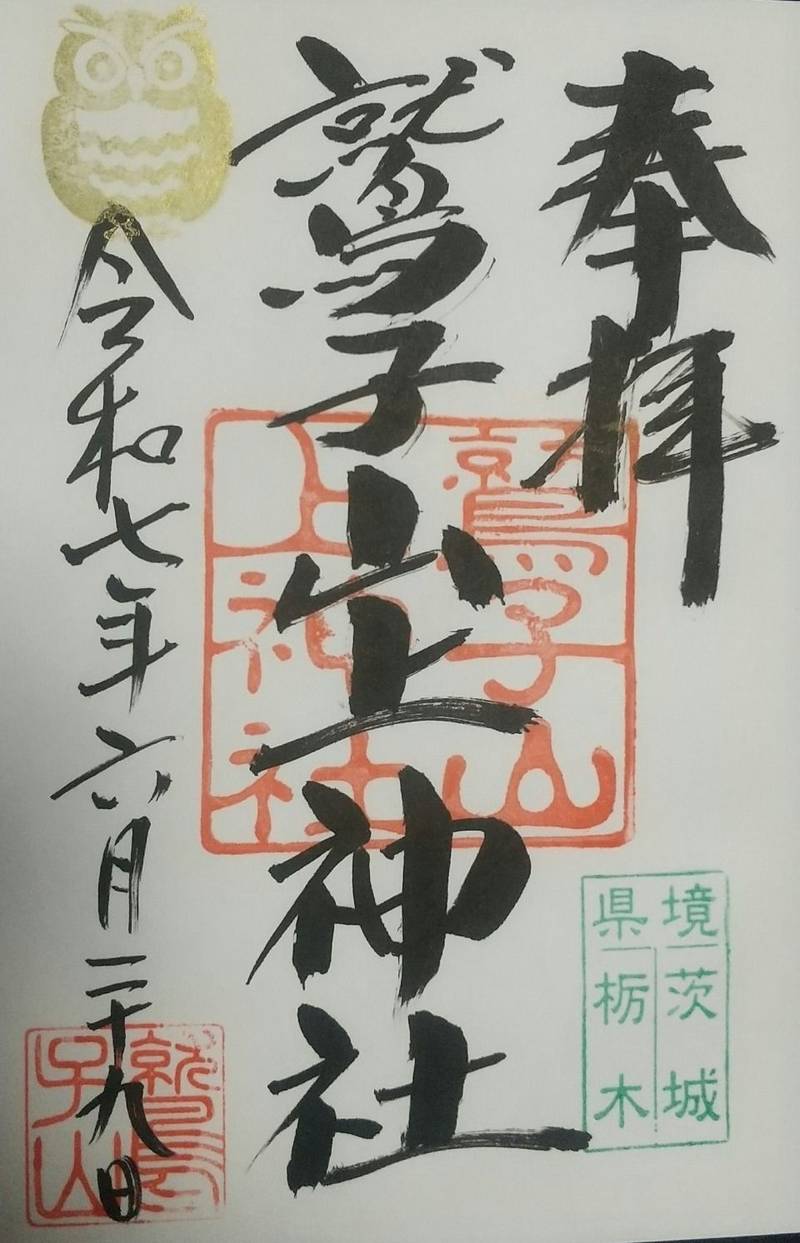 奉拝
鷲子山上神社
令和七年六月二十九日
鷲子山
上神社
境 茨城
県 栃木
鷲
子山